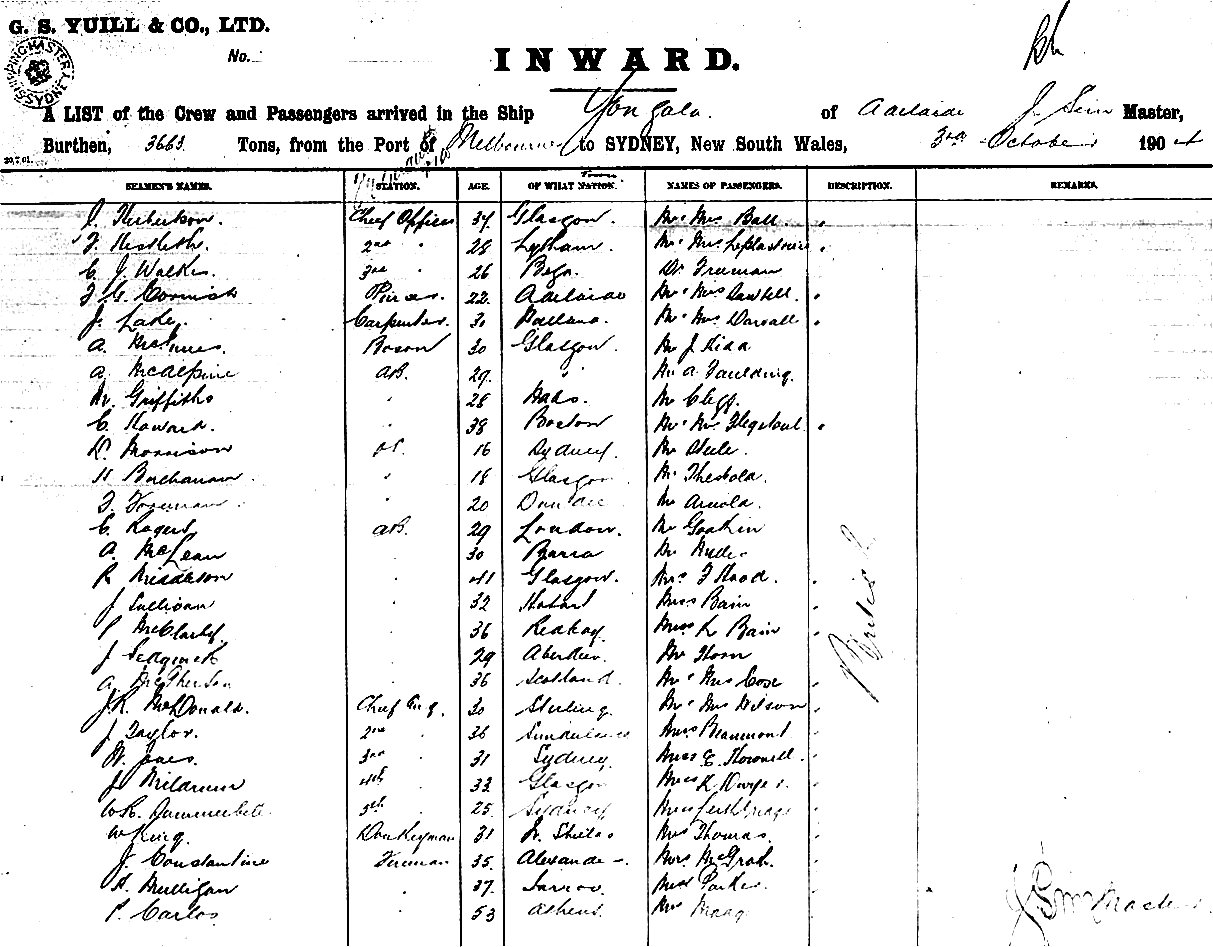 G. S. YUILL & CO., LTD.
No.
SHIPPING MASTER SYDNEY
INWARD.
A LIST of the Crew and Passengers arrived in the Ship Yongala. of Adelaide J. Sim Master,
Burthen, 3663 Tons, from the Port of Melbourne to SYDNEY, New South Wales, 3rd October 1904
20.7.01.
SEAMEN'S NAMES. STATION. AGE. OF WHAT NATION. Town NAMES OF PASSENGERS. DESCRIPTION. REMARKS.
Chief Officer 34 Glasgow. Mr Mrs Ball
2nd " 28 Lytham. Mr Mrs Leplastrier
C. J. Walker. 3rd " 26 Bega. Dr Freeman
F. G. Cornish 22. Adelaide Mr Mrs Sawtell.
J. Lake. Carpenter. 31 Mr Mrs Darvall
A. Bosun 30 Glasgow. Mr J Kidd
A. McAlpine AB. 29. " Mr A Faulding.
M. Griffiths " 28 Mr Clegg.
C. Howard. " 38 Boston Mr Mrs
D. Morrison OS. 16 Sydney Mr Steele.
H Buchanan " 18 Glasgow Mr Theobold.
F. Foreman " 20 Dundee Mr Arnold.
C. Rogers AB. 29 London. Mr
A. McLean " 30 Barra Mr
R Middleton " 41 Glasgow. Mrs F Hood.
J Sullivan " 32 Hobart Miss Bain
P McClarty. " 36 Miss K Bain
J Sedgwick " 29 Aberdeen. Mr Horn
A McPherson " 36 Scotland. Mr Mrs Cox
J.R. McDonald. Chief Eng. 30 Stirling. Mr Mrs Wilson
J Taylor. 2nd " 36 Sunderland Miss Beaumont
W. Jones. 3rd " 31 Sydney. Miss E Howell.
J. Mildrum 4th " 33 Glasgow Miss K
W.R. 5th " 25. Sydney Miss
W King. Donkeyman 31 N. Shields Mrs Thomas.
J. Constantine Fireman 35. Mrs McGrath.
H. Mulligan " 37. Jarrow. Miss Parker.
P. Carlos " 53 Athens. Mrs
British
J Sim Master